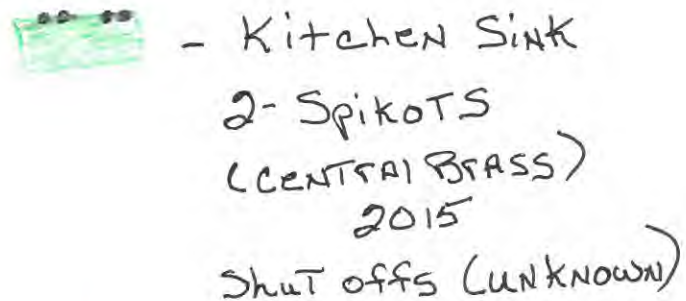 - Kitchen Sink
2- SpikoTS
(CENTrAl BrASS)
2015
ShuT offs (UNKNOWN)